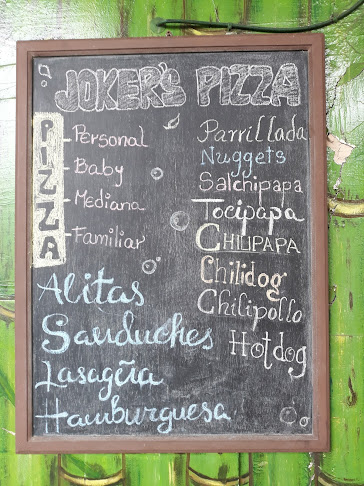 JOKER'S PIZZA
PIZZA
Personal
Baby
Mediana
Familiar
Alitas
Sanduches
Lasagña
Hamburguesa
Parrillada
Nuggets
Salchipapa
Tocipapa
CHILIPAPA
Chilidog
Chilipollo
Hotdog